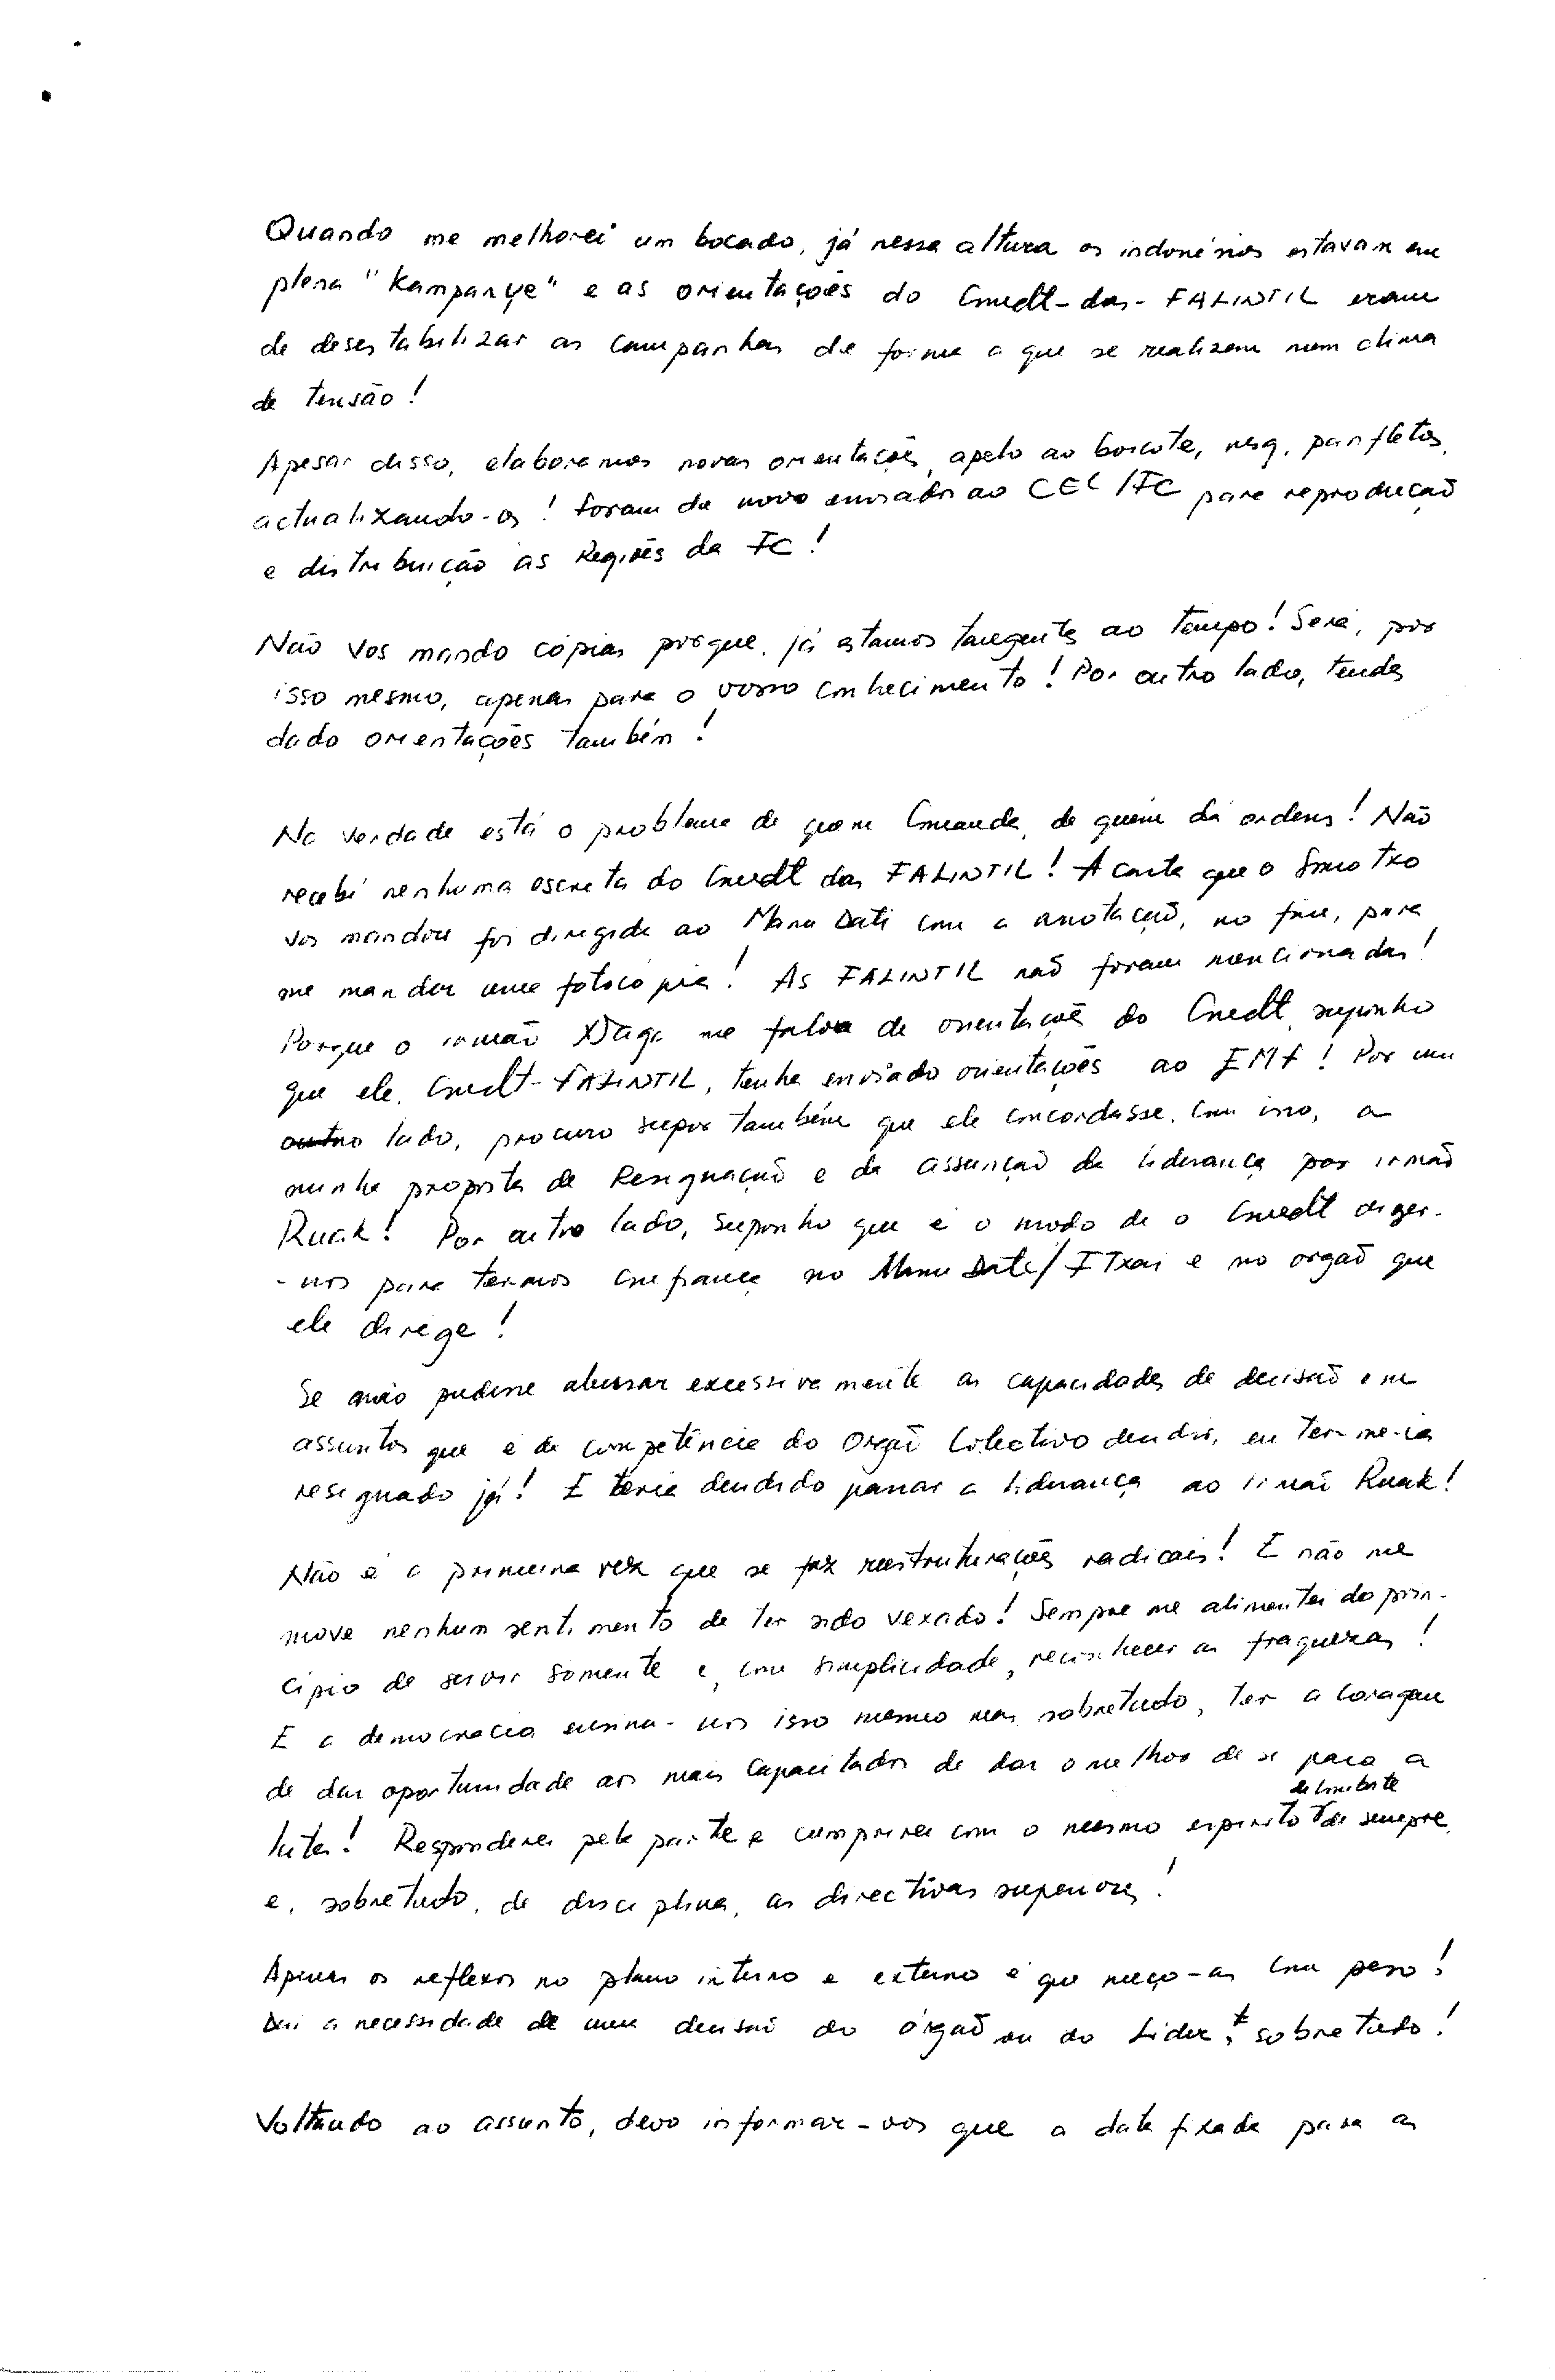 Quando me melhorei um bocado, já nessa altura os indonésios estavam em
plena "Kampanye" e as orientações do Cmdt-das-FALINTIL eram
de desestabilizar as campanhas de forma a que se realizem num clima
de tensão!
Apesar disso, elaboramos novas orientações, apelo ao boicote, msg, panfletos,
actualizando-os! Foram de novo enviados ao CEL/FC para reprodução
e distribuição às Regiões da FC!
Não vos mando cópias porque, já estamos tangentes ao tempo! Será, por
isso mesmo, apenas para o vosso conhecimento! Por outro lado, tendes
dado orientações também!
Na verdade está o problema de quem comanda, de quem dá ordens! Não
recebi nenhuma escrita do Cmdt das FALINTIL! A carta que o
vos mandou foi dirigida ao Manu Dati com a anotação, no fim, para
me mandar uma fotocópia! As FALINTIL não foram mencionadas!
Porque o irmão me falou de orientações do Cmdt, suponho
que ele, Cmdt-FALINTIL, tenha enviado orientações ao EMF! Por um
lado, procuro supor também que ele concordasse, com isso, a
minha proposta de Resignação e da assunção da liderança por irmão
Ruak! Por outro lado, suponho que é o modo de o Cmdt dizer-
-nos para termos confiança no Manu Dati/ITxai e no orgão que
ele dirige!
Se não pudesse abusar excessivamente as capacidades de decisão em
assuntos que é da competência do Orgão Colectivo decidir, eu ter-me-ia
resignado já! E teria decidido passar a liderança ao irmão Ruak!
Não é a primeira vez que se faz reestruturações radicais! E não me
move nenhum sentimento de ter sido vexado! Sempre me alimentei do prin-
cípio de servir somente e, com simplicidade, reconhecer as fraquezas!
E a democracia ensina-nos isso mesmo mas, sobretudo, ter a coragem
de dar oportunidade aos mais capacitados de dar o melhor de si para a
luta! Responderei pela parte e cumprirei com o mesmo espírito de combate de sempre,
e, sobretudo, de disciplina, as directivas superiores!
Apenas os reflexos no plano interno e externo é que meço-as com peso!
Daí a necessidade de uma decisão do órgão ou do Líder, sobretudo!
Voltando ao assunto, devo informar-vos que a data fixada para as